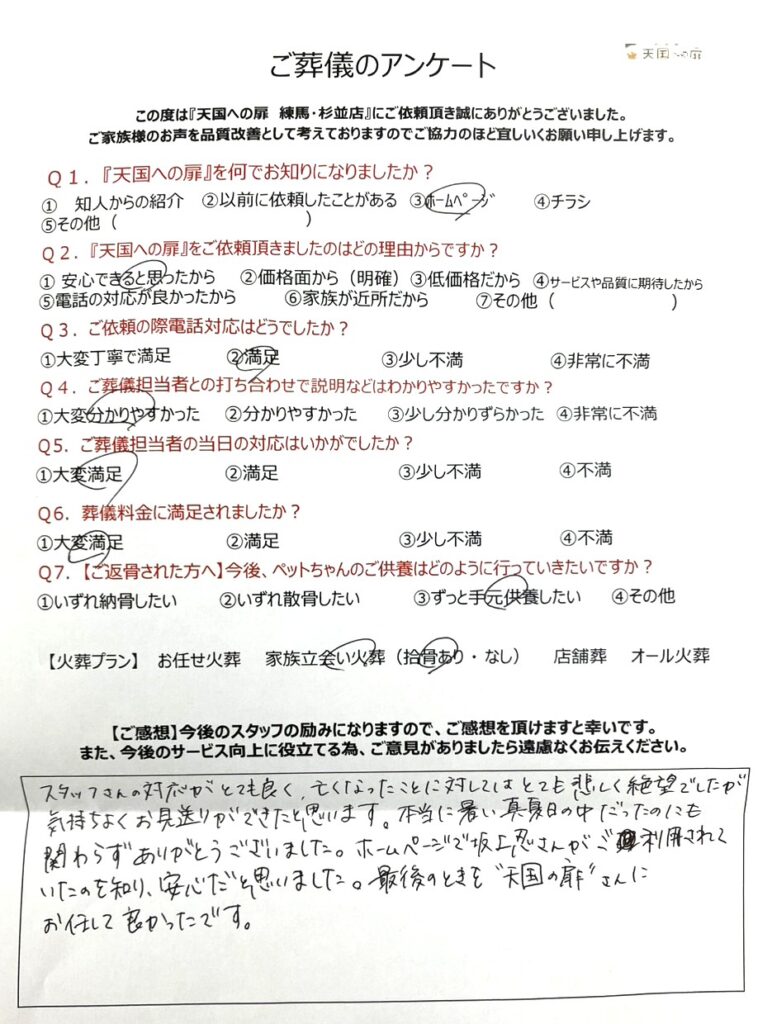 ご葬儀のアンケート
天国への扉
この度は『天国への扉 練馬・杉並店』にご依頼頂き誠にありがとうございました。
ご家族様のお声を品質改善として考えておりますのでご協力のほど宜しいくお願い申し上げます。
Q1.『天国への扉』を何でお知りになりましたか？
① 知人からの紹介 ②以前に依頼したことがある ③ホームページ ④チラシ
⑤その他（ ）
Q2.『天国への扉』をご依頼頂きましたのはどの理由からですか？
① 安心できると思ったから ②価格面から（明確） ③低価格だから ④サービスや品質に期待したから
⑤電話の対応が良かったから ⑥家族が近所だから ⑦その他（ ）
Q3．ご依頼の際電話対応はどうでしたか？
①大変丁寧で満足 ②満足 ③少し不満 ④非常に不満
Q4．ご葬儀担当者との打ち合わせで説明などはわかりやすかったですか？
①大変分かりやすかった ②分かりやすかった ③少し分かりずらかった ④非常に不満
Q5．ご葬儀担当者の当日の対応はいかがでしたか？
①大変満足 ②満足 ③少し不満 ④不満
Q6．葬儀料金に満足されましたか？
①大変満足 ②満足 ③少し不満 ④不満
Q7．【ご返骨された方へ】今後、ペットちゃんのご供養はどのように行っていきたいですか？
①いずれ納骨したい ②いずれ散骨したい ③ずっと手元供養したい ④その他
【火葬プラン】 お任せ火葬 家族立会い火葬（拾骨あり・なし） 店舗葬 オール火葬
【ご感想】今後のスタッフの励みになりますので、ご感想を頂けますと幸いです。
また、今後のサービス向上に役立てる為、ご意見がありましたら遠慮なくお伝えください。
スタッフさんの対応がとても良く、亡くなったことに対してはとても悲しく絶望でしたが
気持ちよくお見送りができたと思います。本当に暑い真夏日の中だったのにも
関わらずありがとうございました。ホームページで坂上忍さんがご利用されて
いたのを知り、安心だと思いました。最後のときを"天国の扉"さんに
お任して良かったです。